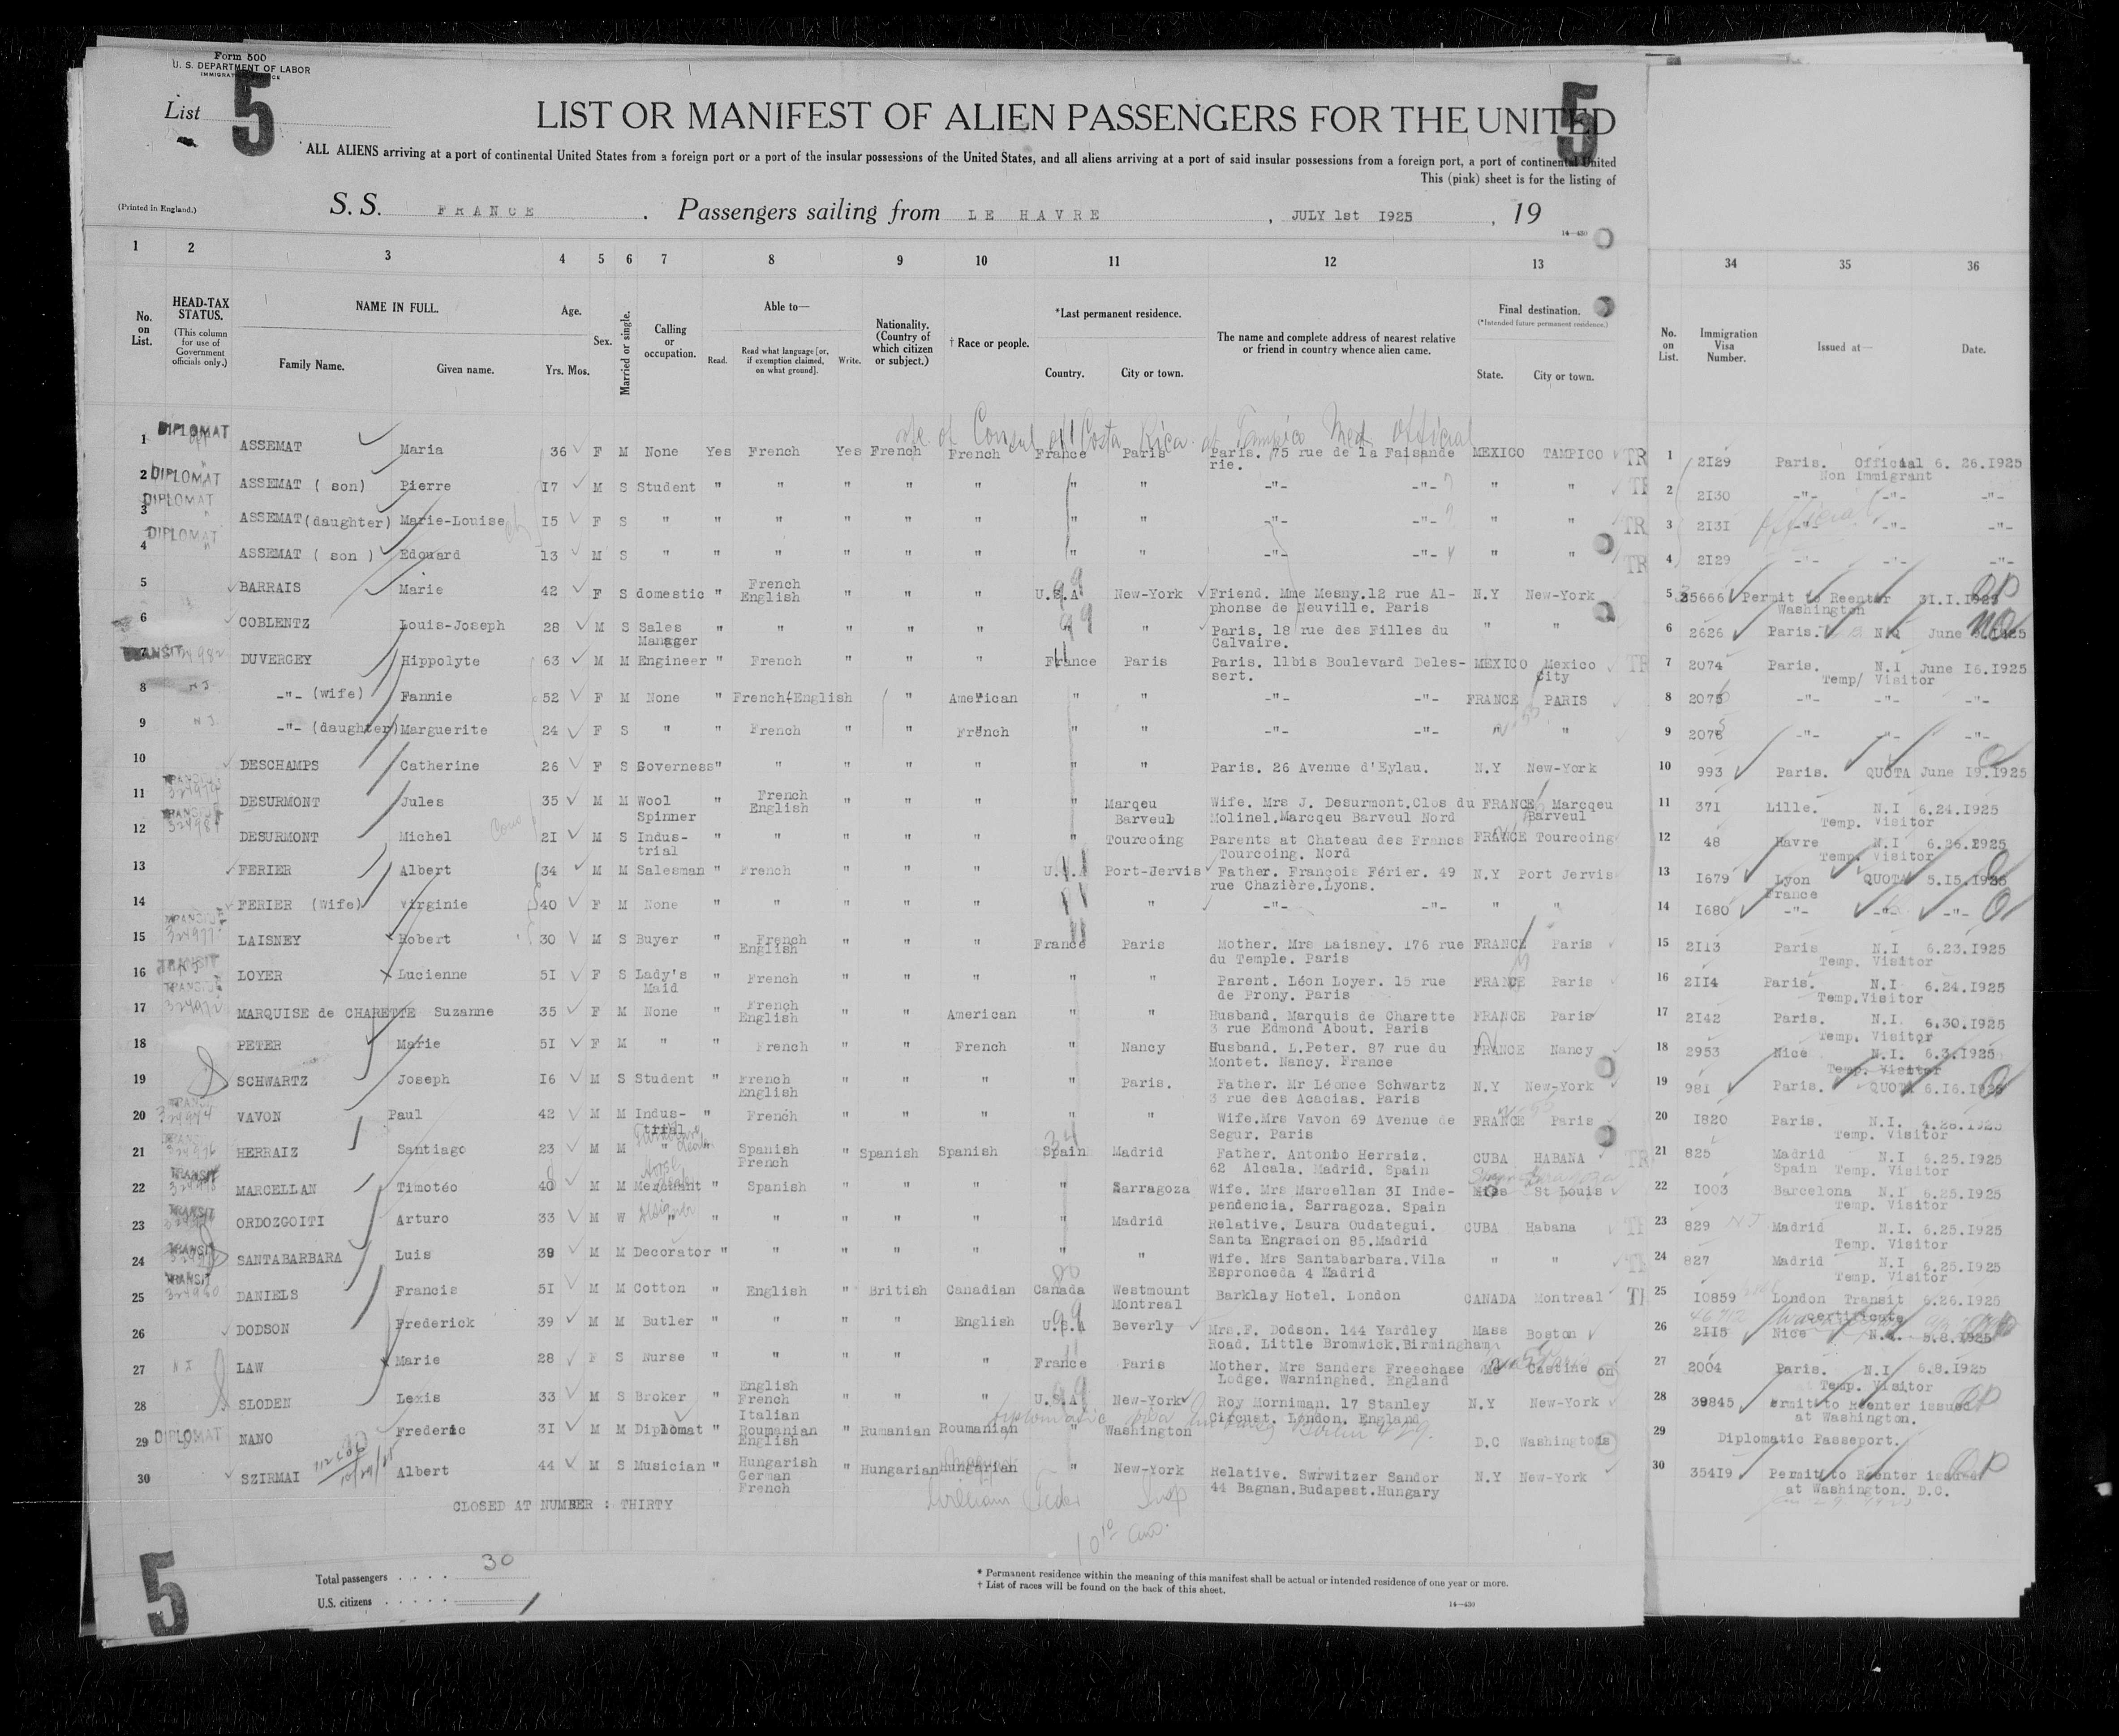 Form 500
U. S. DEPARTMENT OF LABOR
IMMIGRATION SERVICE
List 5
5
LIST OR MANIFEST OF ALIEN PASSENGERS FOR THE UNITED
ALL ALIENS arriving at a port of continental United States from a foreign port or a port of the insular possessions of the United States, and all aliens arriving at a port of said insular possessions from a foreign port, a port of continental United
This (pink) sheet is for the listing of
(Printed in England.)
S. S. FRANCE . Passengers sailing from LE HAVRE , JULY 1st 1925 , 19
14—430
1 2 3 4 5 6 7 8 9 10 11 12 13 34 35 36
No. on List.
HEAD-TAX STATUS.
(This column for use of Government officials only.)
NAME IN FULL.
Family Name. Given name.
Age.
Yrs. Mos.
Sex.
Married or single.
Calling or occupation.
Able to—
Read. Read what language [or, if exemption claimed, on what ground]. Write.
Nationality. (Country of which citizen or subject.)
† Race or people.
*Last permanent residence.
Country. City or town.
The name and complete address of nearest relative or friend in country whence alien came.
Final destination.
(*Intended future permanent residence.)
State. City or town.
No. on List.
Immigration Visa Number.
Issued at—
Date.
of Consul of Costa Rica at Tampico Mex Official
1 DIPLOMAT ASSEMAT Maria 36 F M None Yes French Yes French French France Paris Paris. 75 rue de la Faisande MEXICO TAMPICO TR 1 2129 Paris. Official 6. 26.1925
rie. Non Immigrant
2 DIPLOMAT ASSEMAT ( son) Pierre 17 M S Student " " " " " " " -"- -"- " " 2 2130 -"- -"- -"-
3 DIPLOMAT ASSEMAT (daughter) Marie-Louise 15 F S " " " " " " " " -"- -"- " " TR 3 2131 -"- -"- -"-
4 DIPLOMAT ASSEMAT ( son ) Edouard 13 M S " " " " " " " " -"- -"- " " TR 4 2129 -"- -"- -"-
5 BARRAIS Marie 42 F S domestic " French English " " " U.S.A New-York Friend. Mme Mesny.12 rue Al- N.Y New-York 5 35666 Permit to Reenter 31.I.1925
phonse de Neuville. Paris Washington
6 COBLENTZ Louis-Joseph 28 M S Sales Manager " " " " " " Paris. 18 rue des Filles du " " 6 2626 Paris. N.Q June
Calvaire.
7 TRANSIT DUVERGEY Hippolyte 63 M M Engineer " French " " " France Paris Paris. 11bis Boulevard Deles- MEXICO Mexico City 7 2074 Paris. N.I June 16.1925
sert. Temp/ Visitor
8 -"- (wife) Fannie 52 F M None " French-English " American " " -"- -"- FRANCE PARIS 8 2075 -"- -"- -"-
9 -"- (daughter) Marguerite 24 F S " " French " " French " " -"- -"- " " 9 207 -"- -"- -"-
10 DESCHAMPS Catherine 26 F S Governess " " " " " " " Paris. 26 Avenue d'Eylau. N.Y New-York 10 993 Paris. QUOTA June 19.1925
11 DESURMONT Jules 35 M M Wool Spinner " French English " " " " Marqeu Barveul Wife. Mrs J. Desurmont.Clos du FRANCE Marcqeu Barveul 11 371 Lille. N.I 6.24.1925
Molinel.Marcqeu Barveul Nord Temp. Visitor
12 DESURMONT Michel 21 M S Indus- trial " " " " " " Tourcoing Parents at Chateau des Francs FRANCE Tourcoing 12 48 Havre N.I 6.26.1925
Tourcoing. Nord Temp. Visitor
13 FERIER Albert 34 M M Salesman " French " " " U.S.A Port-Jervis Father. François Férier. 49 N.Y Port Jervis 13 1679 Lyon QUOTA 5.15.1925
rue Chazière.Lyons. France
14 FERIER (Wife) Virginie 40 F M None " " " " " " -"- -"- " " 14 1680 -"- -"- -"-
15 LAISNEY Robert 30 M S Buyer " French English " " " France Paris Mother. Mrs Laisney. 176 rue FRANCE Paris 15 2113 Paris N.I 6.23.1925
du Temple. Paris Temp. Visitor
16 TRANSIT LOYER Lucienne 51 F S Lady's Maid " French " " " " " Parent. Léon Loyer. 15 rue FRANCE Paris 16 2114 Paris. N.I 6.24.1925
de Prony. Paris Temp.Visitor
17 MARQUISE de CHARETTE Suzanne 35 F M None " French English " " American " " Husband. Marquis de Charette FRANCE Paris 17 2142 Paris. N.I. 6.30.1925
3 rue Edmond About. Paris Temp. Visitor
18 PETER Marie 51 F M " " French " " French " Nancy Husband. L.Peter. 87 rue du FRANCE Nancy 18 2953 Nice N.I. 6.3.1925
Montet. Nancy. France Temp. Visitor
19 SCHWARTZ Joseph 16 M S Student " French English " " " " Paris. Father. Mr Léonce Schwartz N.Y New-York 19 981 Paris. QUOTA 6.16.1925
3 rue des Acacias. Paris
20 VAVON Paul 42 M M Indus- trial " French " " " " " Wife.Mrs Vavon 69 Avenue de FRANCE Paris 20 1820 Paris. N.I. 4.28.1925
Segur. Paris Temp. Visitor
21 HERRAIZ Santiago 23 M M " " Spanish French " Spanish Spanish Spain Madrid Father. Antonio Herraiz. CUBA HABANA TR 21 825 Madrid N.I 6.25.1925
62 Alcala. Madrid. Spain Spain Temp. Visitor
22 TRANSIT MARCELLAN Timotéo 40 M M Merchant " Spanish " " " " Sarragoza Wife. Mrs Marcellan 31 Inde- St Louis 22 1003 Barcelona N.I 6.25.1925
pendencia. Sarragoza. Spain Temp. Visitor
23 TRANSIT ORDOZGOITI Arturo 33 M W designer " " " " " " " Madrid Relative. Laura Oudategui. CUBA Habana 23 829 Madrid N.I. 6.25.1925
Santa Engracion 85.Madrid Temp. Visitor
24 TRANSIT SANTABARBARA Luis 39 M M Decorator " " " " " " " Wife. Mrs Santabarbara.Vila " " 24 827 Madrid N.I 6.25.1925
Espronceda 4 Madrid Temp. Visitor
25 TRANSIT DANIELS Francis 51 M M Cotton " English " British Canadian Canada Westmount Montreal Barklay Hotel. London CANADA Montreal 25 10859 London Transit 6.26.1925
certificate
26 DODSON Frederick 39 M M Butler " " " " English U.S.A Beverly Mrs.F. Dodson. 144 Yardley Mass Boston 26 2115 Nice N.I. 5.8.1925
Road. Little Bromwick.Birmingham
27 N I LAW Marie 28 F S Nurse " " " " " France Paris Mother. Mrs Sanders Freechase Me Castine 27 2004 Paris. N.I 6.8.1925
Lodge. Warninghed. England Temp. Visitor
28 SLODEN Lexis 33 M S Broker " English French " " " U.S.A New-York Roy Morniman. 17 Stanley N.Y New-York 28 39845 ermit to Reenter issued
Circust. London. England at Washington.
29 DIPLOMAT NANO Frederic 31 M M Diplomat " Italian Roumanian English " Rumanian Roumanian " Washington D.C Washington 29 Diplomatic Passeport.
30 SZIRMAI Albert 44 M S Musician " Hungarish German French " Hungarian Hungarian " New-York Relative. Swrwitzer Sandor N.Y New-York 30 35419 Permit to Reenter issued
44 Bagnan.Budapest.Hungary at Washington. D.C.
CLOSED AT NUMBER : THIRTY
5
Total passengers . . . . 30
U.S. citizens . . . . .
* Permanent residence within the meaning of this manifest shall be actual or intended residence of one year or more.
† List of races will be found on the back of this sheet.
14—430